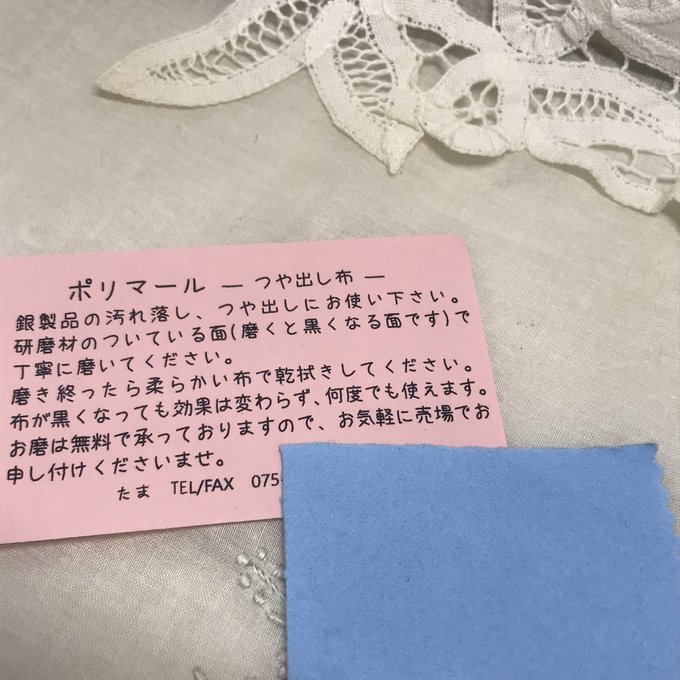 ポリマール ― つや出し布 ―
銀製品の汚れ落し、つや出しにお使い下さい。
研磨材のついている面(磨くと黒くなる面です)で
丁寧に磨いてください。
磨き終ったら柔らかい布で乾拭きしてください。
布が黒くなっても効果は変わらず、何度でも使えます。
お磨は無料で承っておりますので、お気軽に売場でお
申し付けくださいませ。
たま TEL/FAX 075-